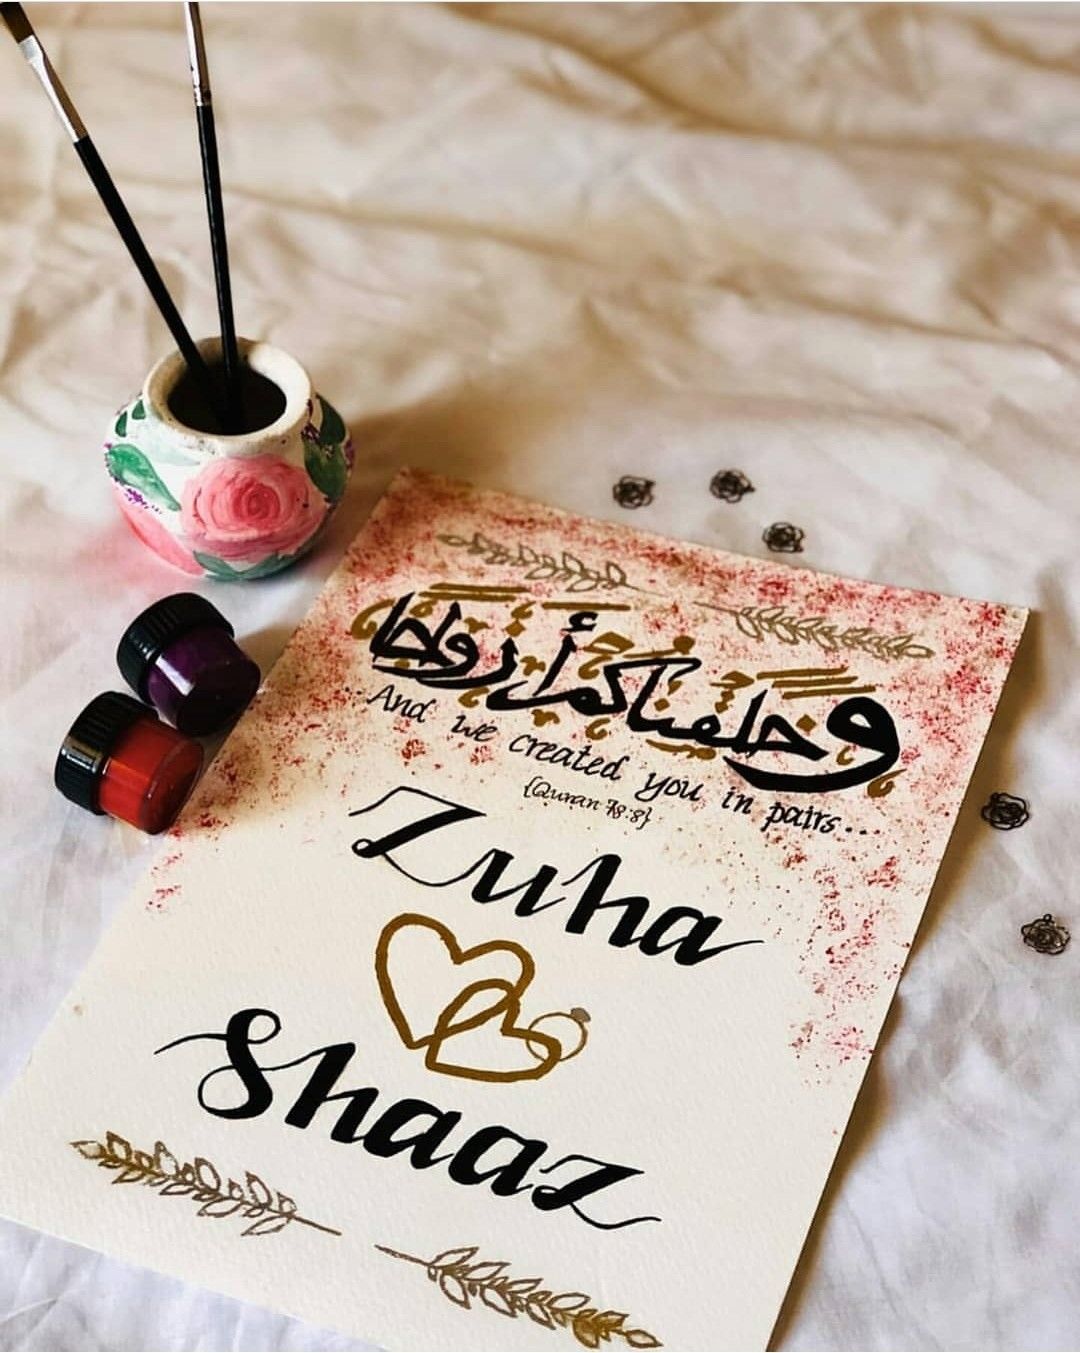 وخلقناكم أزواجا
..And we created you in pairs..
{Quran 78:8}
Zuha
Shaaz